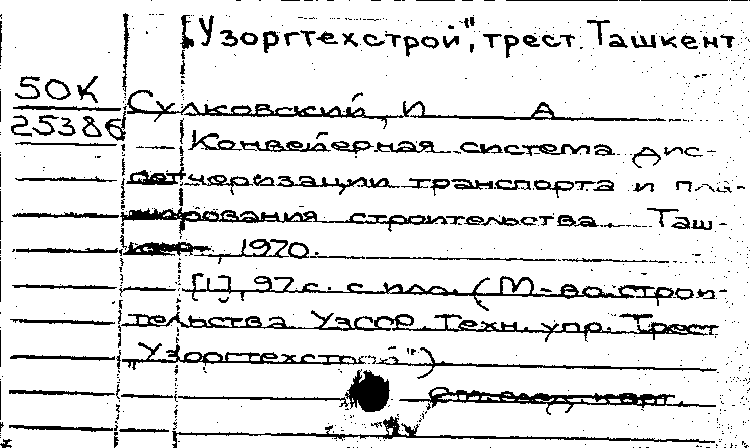 „Узоргтехстрой", трест. Ташкент
50К
25386
Сулковский, И А
Конвейерная система дис-
петчеризации транспорта и пла-
нирования строительства. Таш-
кент, 1970.
[1], 97 с. с илл. (М-во строи-
тельства УзССР. Техн. упр. Трест
„Узоргтехстрой")
См. след. карт.